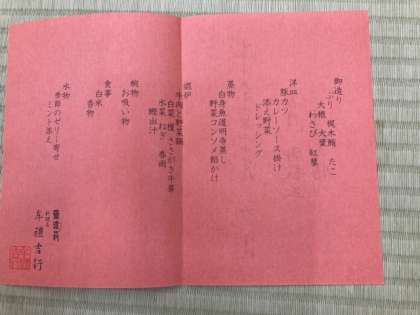 御造り
ぶり 梶木鮪 たこ
大根 大葉
わさび 紅蓼
洋皿
豚カツ
カレーソース掛け
添え野菜
ドレッシング
蒸物
白身魚道明寺蒸し
野菜コンソメ餡かけ
温炉
牛肉と野菜鍋
白菜 榎 ささがき牛蒡
水菜 ねぎ 春雨
鰹出汁
椀物
お吸い物
食事
白米
香物
水物
季節のゼリー寄せ
ミント添え